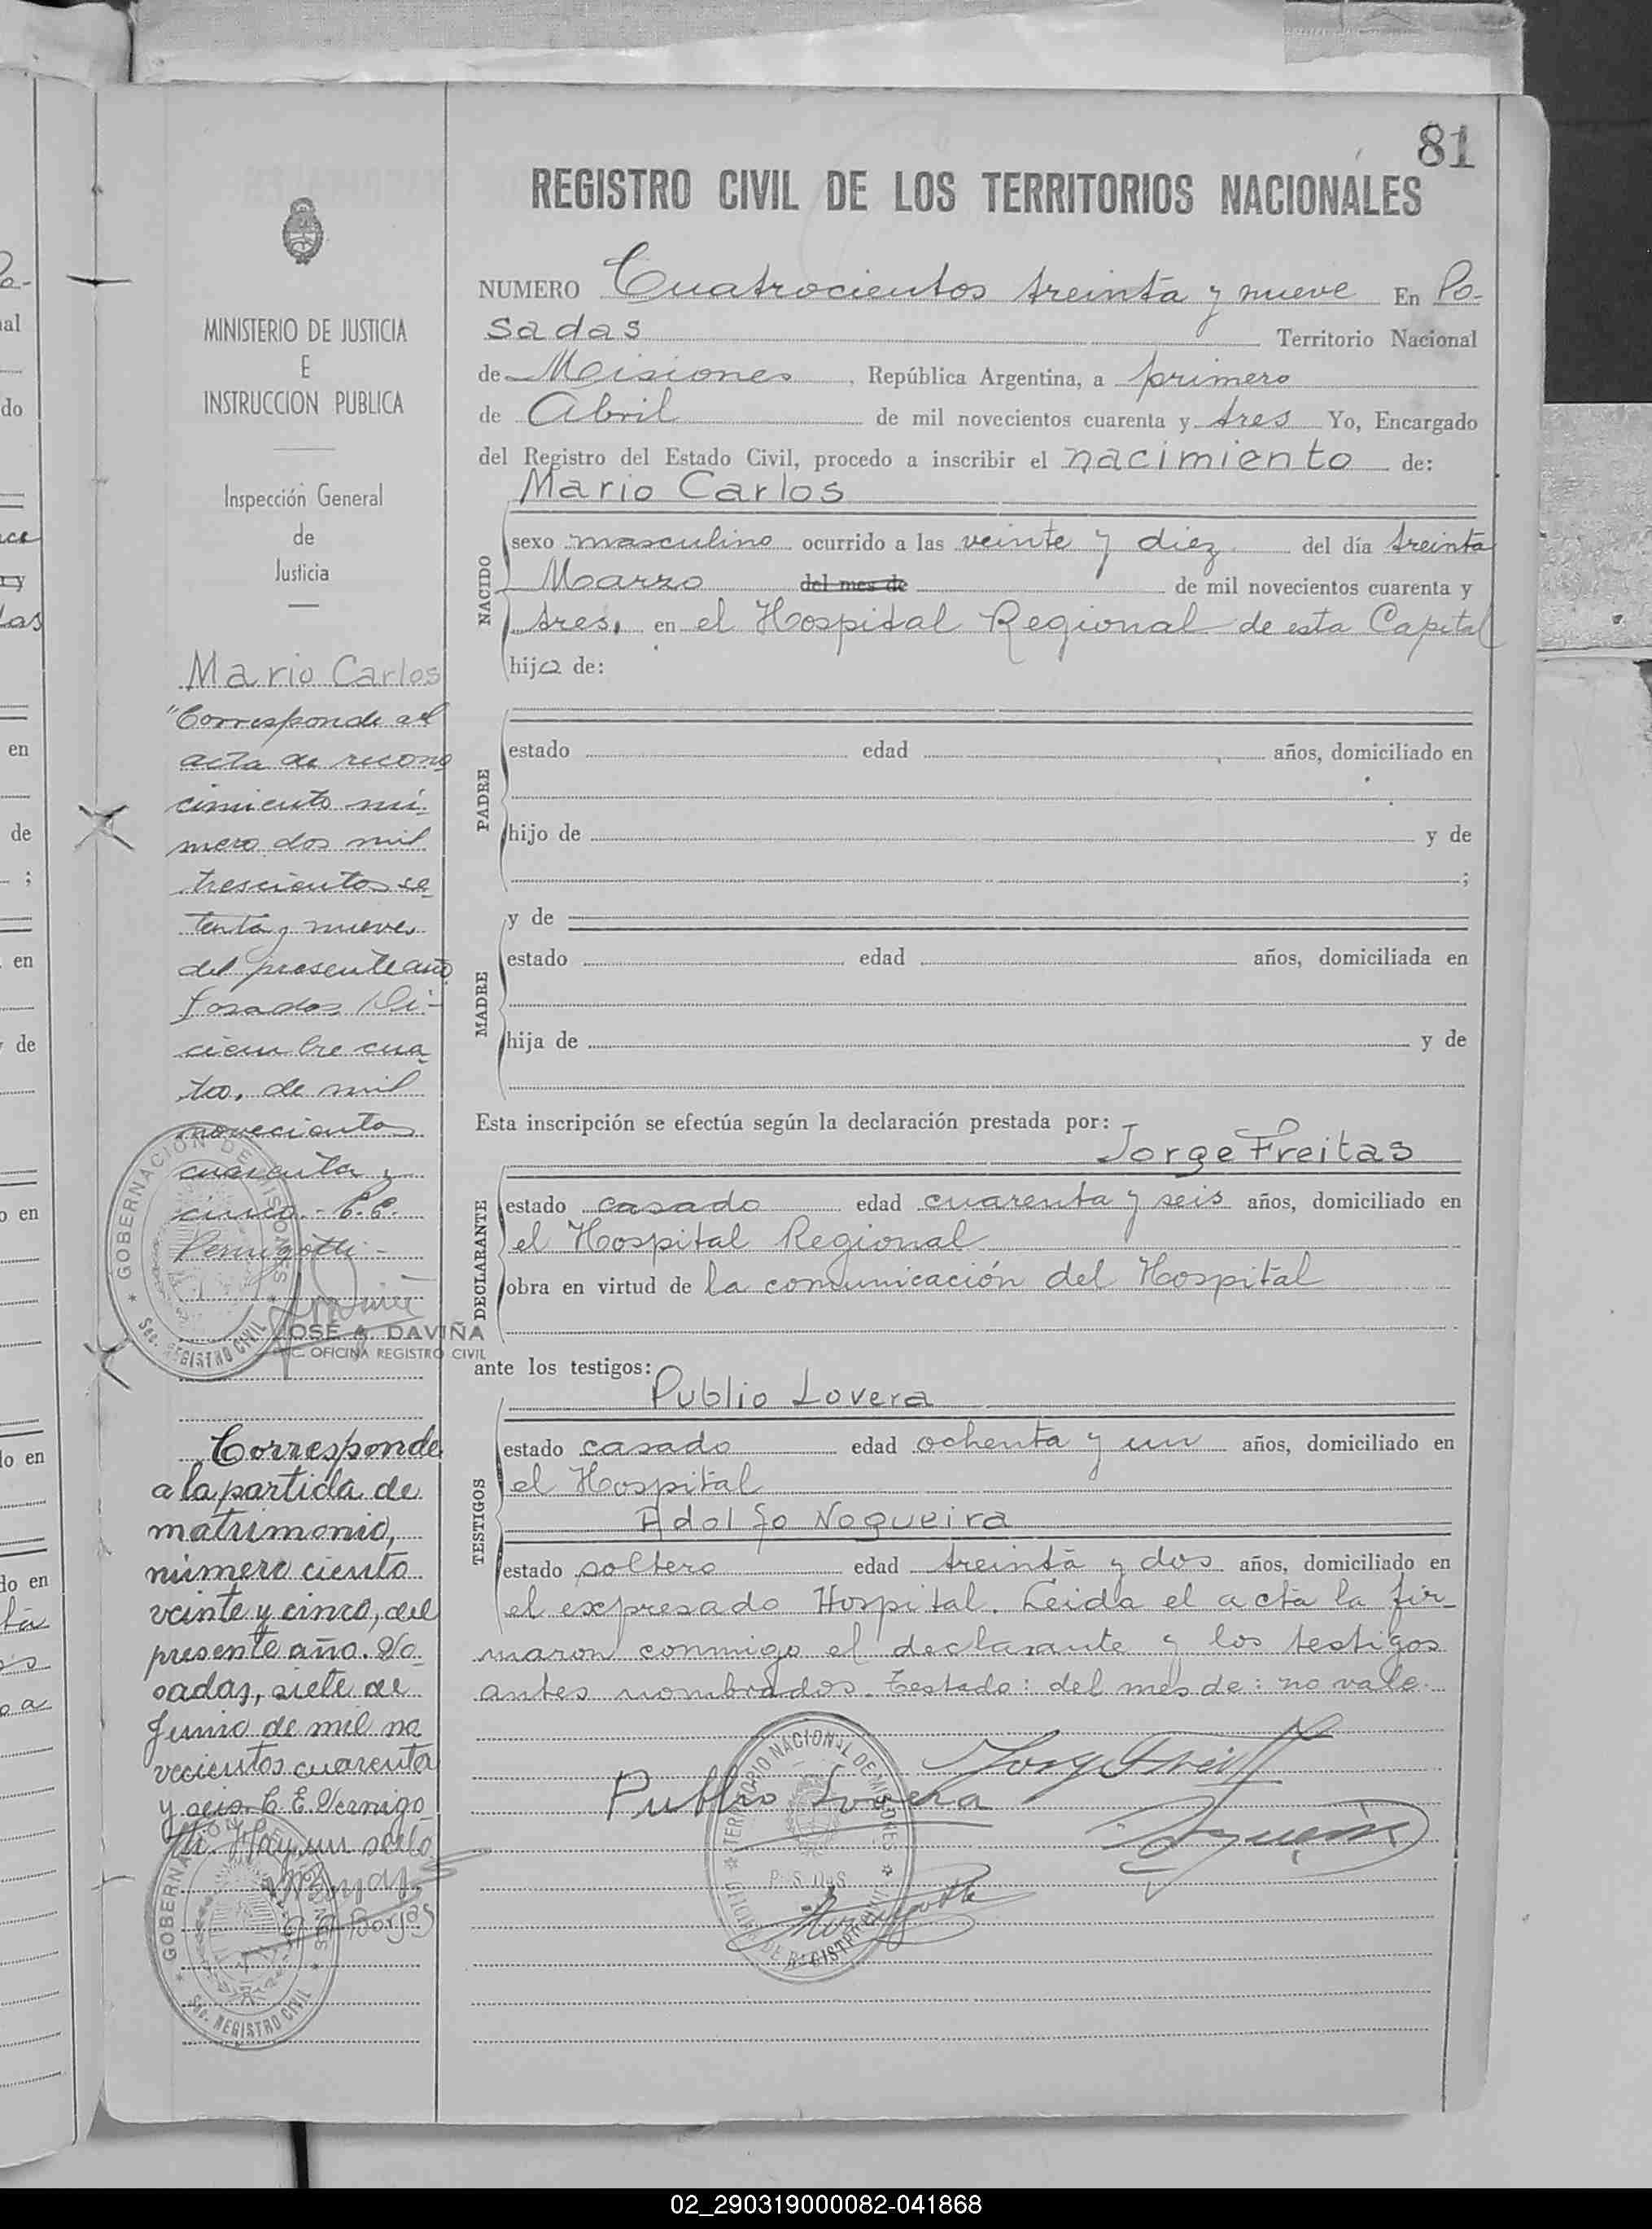 81
REGISTRO CIVIL DE LOS TERRITORIOS NACIONALES
MINISTERIO DE JUSTICIA
E
INSTRUCCION PUBLICA
Inspección General
de
Justicia
Mario Carlos
"Corresponde al
acta de recono
cimiento nú-
mero dos mil
trescientos se-
tenta y nueve,
del presente año
Posadas, Di-
ciembre cua-
tro, de mil
novecientos
cuarenta y
cinco. - C.E.
Pernigotti -
JOSE A. DAVIÑA
OFICINA REGISTRO CIVIL
GOBERNACION DE MISIONES
Sec. REGISTRO CIVIL
Corresponde
a la partida de
matrimonio,
número ciento
veinte y cinco, del
presente año. Po-
sadas, siete de
Junio de mil no
vecientos cuarenta
y seis. C. E. Pernigo-
tti. Hay un sello
Borjas
GOBERNACION DE MISIONES
Sec. REGISTRO CIVIL
NUMERO Cuatrocientos treinta y nueve En Po-
sadas Territorio Nacional
de Misiones, República Argentina, a primero
de Abril de mil novecientos cuarenta y tres Yo, Encargado
del Registro del Estado Civil, procedo a inscribir el nacimiento de:
Mario Carlos
NACIDO
sexo masculino ocurrido a las veinte y diez del día treinta
Marzo del mes de de mil novecientos cuarenta y
tres, en el Hospital Regional de esta Capital
hijo de:
PADRE
estado edad años, domiciliado en
hijo de y de
;
MADRE
y de
estado edad años, domiciliada en
hija de y de
Esta inscripción se efectúa según la declaración prestada por:
Jorge Freitas
DECLARANTE
estado casado edad cuarenta y seis años, domiciliado en
el Hospital Regional
obra en virtud de la comunicación del Hospital
ante los testigos:
Publio Lovera
TESTIGOS
estado casado edad ochenta y un años, domiciliado en
el Hospital
Adolfo Nogueira
estado soltero edad treinta y dos años, domiciliado en
el expresado Hospital. Leida el acta la fir-
maron conmigo el declarante y los testigos
antes nombrados. Testado: del mes de: no vale.
Jorge Freitas
Publio Lovera
TERRITORIO NACIONAL DE MISIONES
POSADAS
OFICINA DE REGISTRO CIVIL
02_290319000082-041868